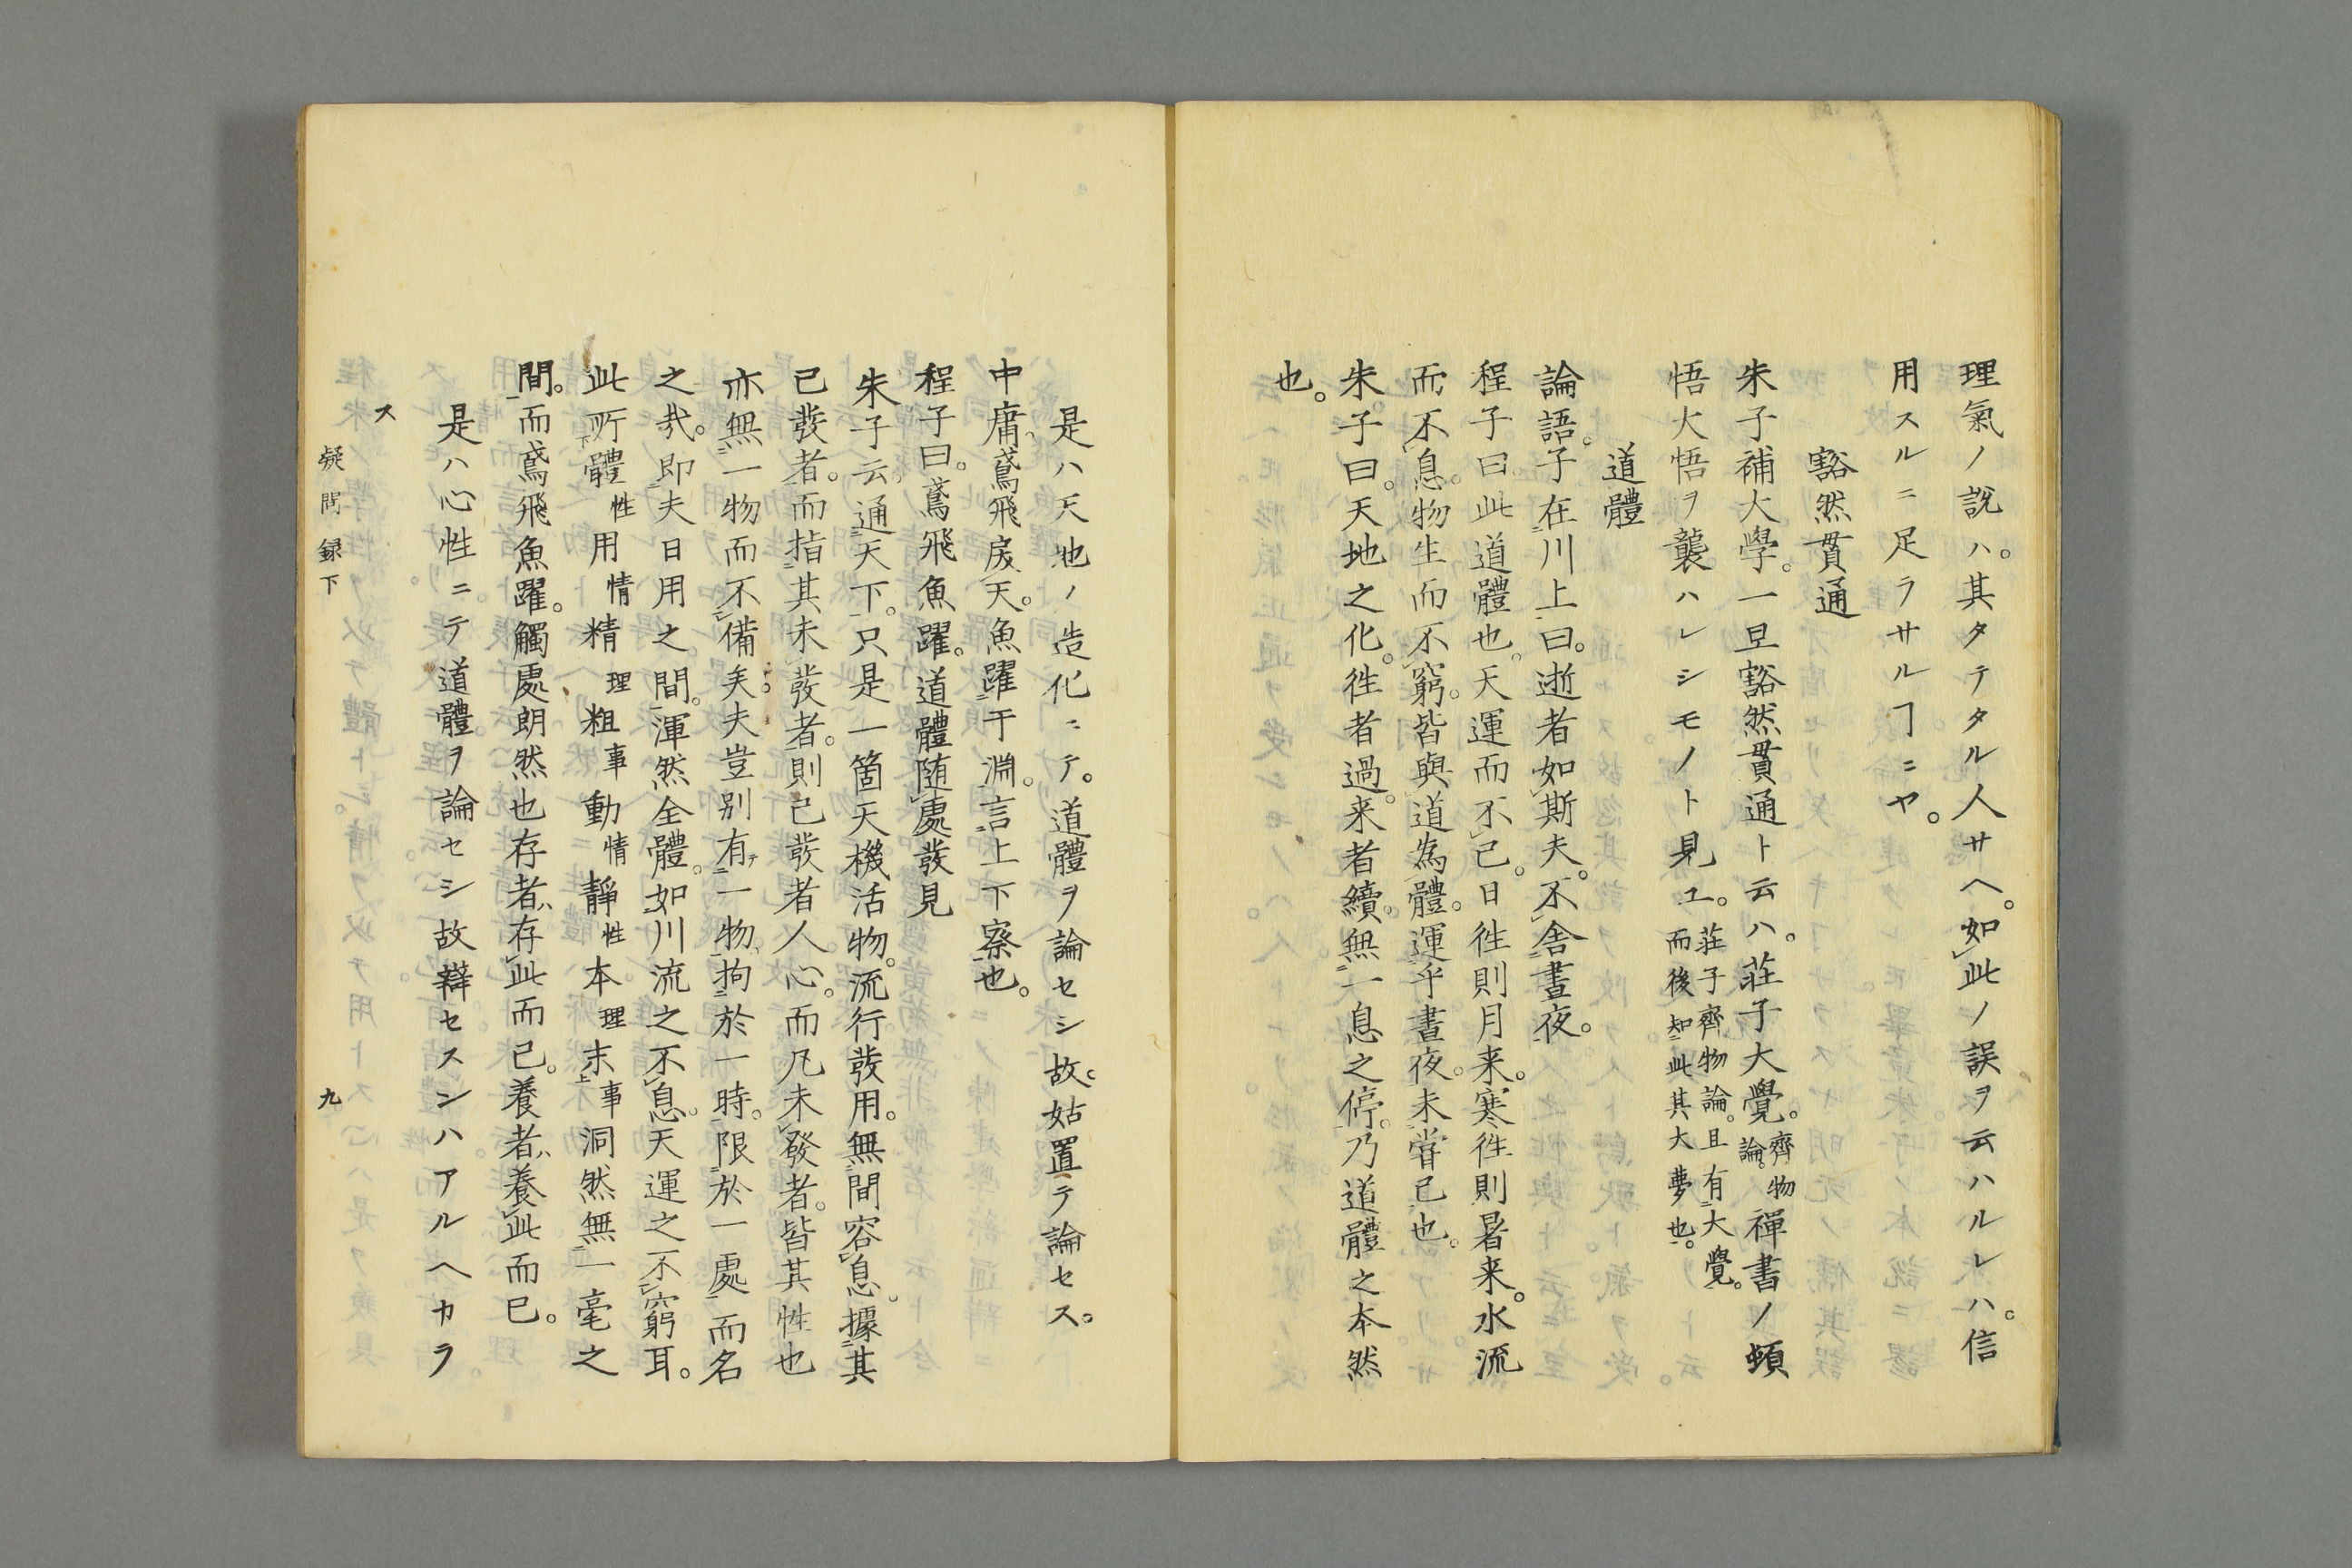 理氣ノ說ハ。其タテタル人サヘ。如此ノ誤ヲ云ハルレハ。信
用スルニ足ラサルヿニヤ。
豁然貫通
朱子補大學。一旦豁然貫通ト云ハ。莊子大覺。齊物論。禪書ノ頓
悟大悟ヲ襲ハレシモノト見ユ。莊子齊物論。且有大覺。而後知此其大夢也。
道體
論語。子在川上曰。逝者如斯夫。不舍晝夜。
程子曰。此道體也。天運而不已。日徃則月来。寒徃則暑来。水流
而不息。物生而不窮。皆與道為體。運乎晝夜。未嘗已也。
朱子曰。天地之化。徃者過。来者續。無一息之停。乃道體之本然
也。
是ハ天地ノ造化ニテ。道體ヲ論セシ故。姑置テ論セス。
中庸。鳶飛戾天。魚躍于淵。言上下察也。
程子曰。鳶飛魚躍。道體随處發見
朱子云。通天下。只是一箇天機活物。流行發用。無間容息。據其
已發者。而指其未發者。則已發者人心。而凡未發者。皆其性也
亦無一物而不備矣。夫豈別有一物。拘於一時。限於一處。而名
之哉。即夫日用之間。渾然全體。如川流之不息。天運之不窮耳。
此所體性用情精理粗事動情靜性本理末事洞然無一毫之
間。而鳶飛魚躍。觸處朗然也存者存此而已。養者養此而已。
是ハ心性ニテ道體ヲ論セシ故辯セスンハアルヘカラ
ス
疑問録下
九